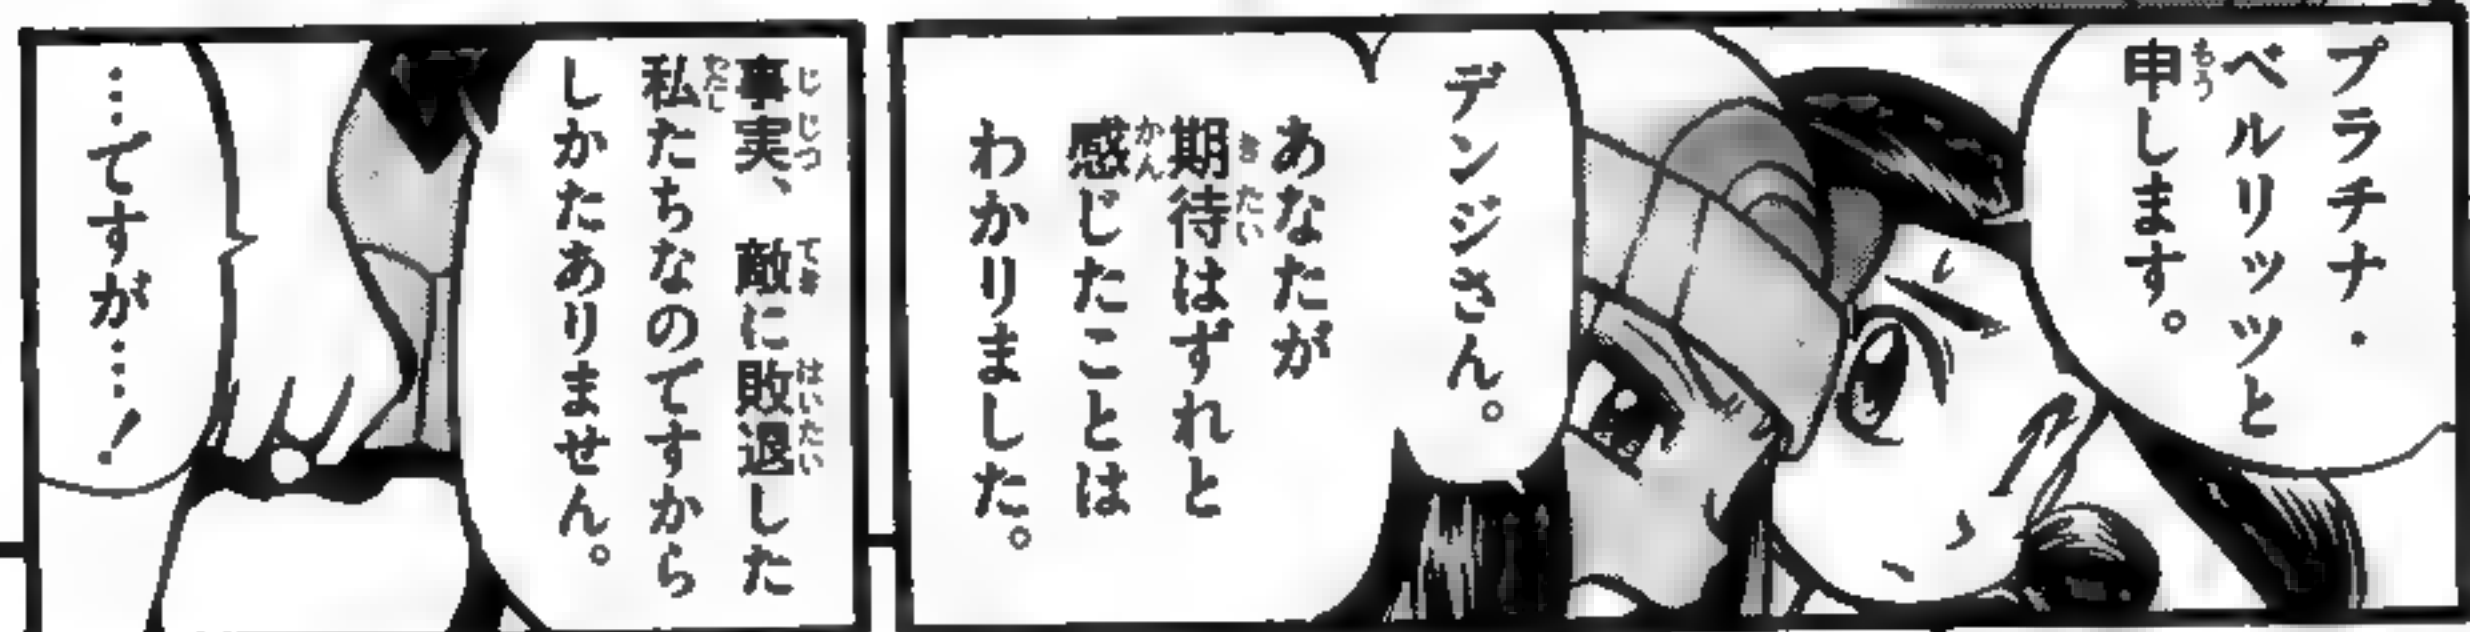 プラチナ・
ベルリッツと
申します。
デンジさん。
あなたが
期待はずれと
感じたことは
わかりました。
事実、敵に敗退した
私たちなのですから
しかたありません。
…ですが…！